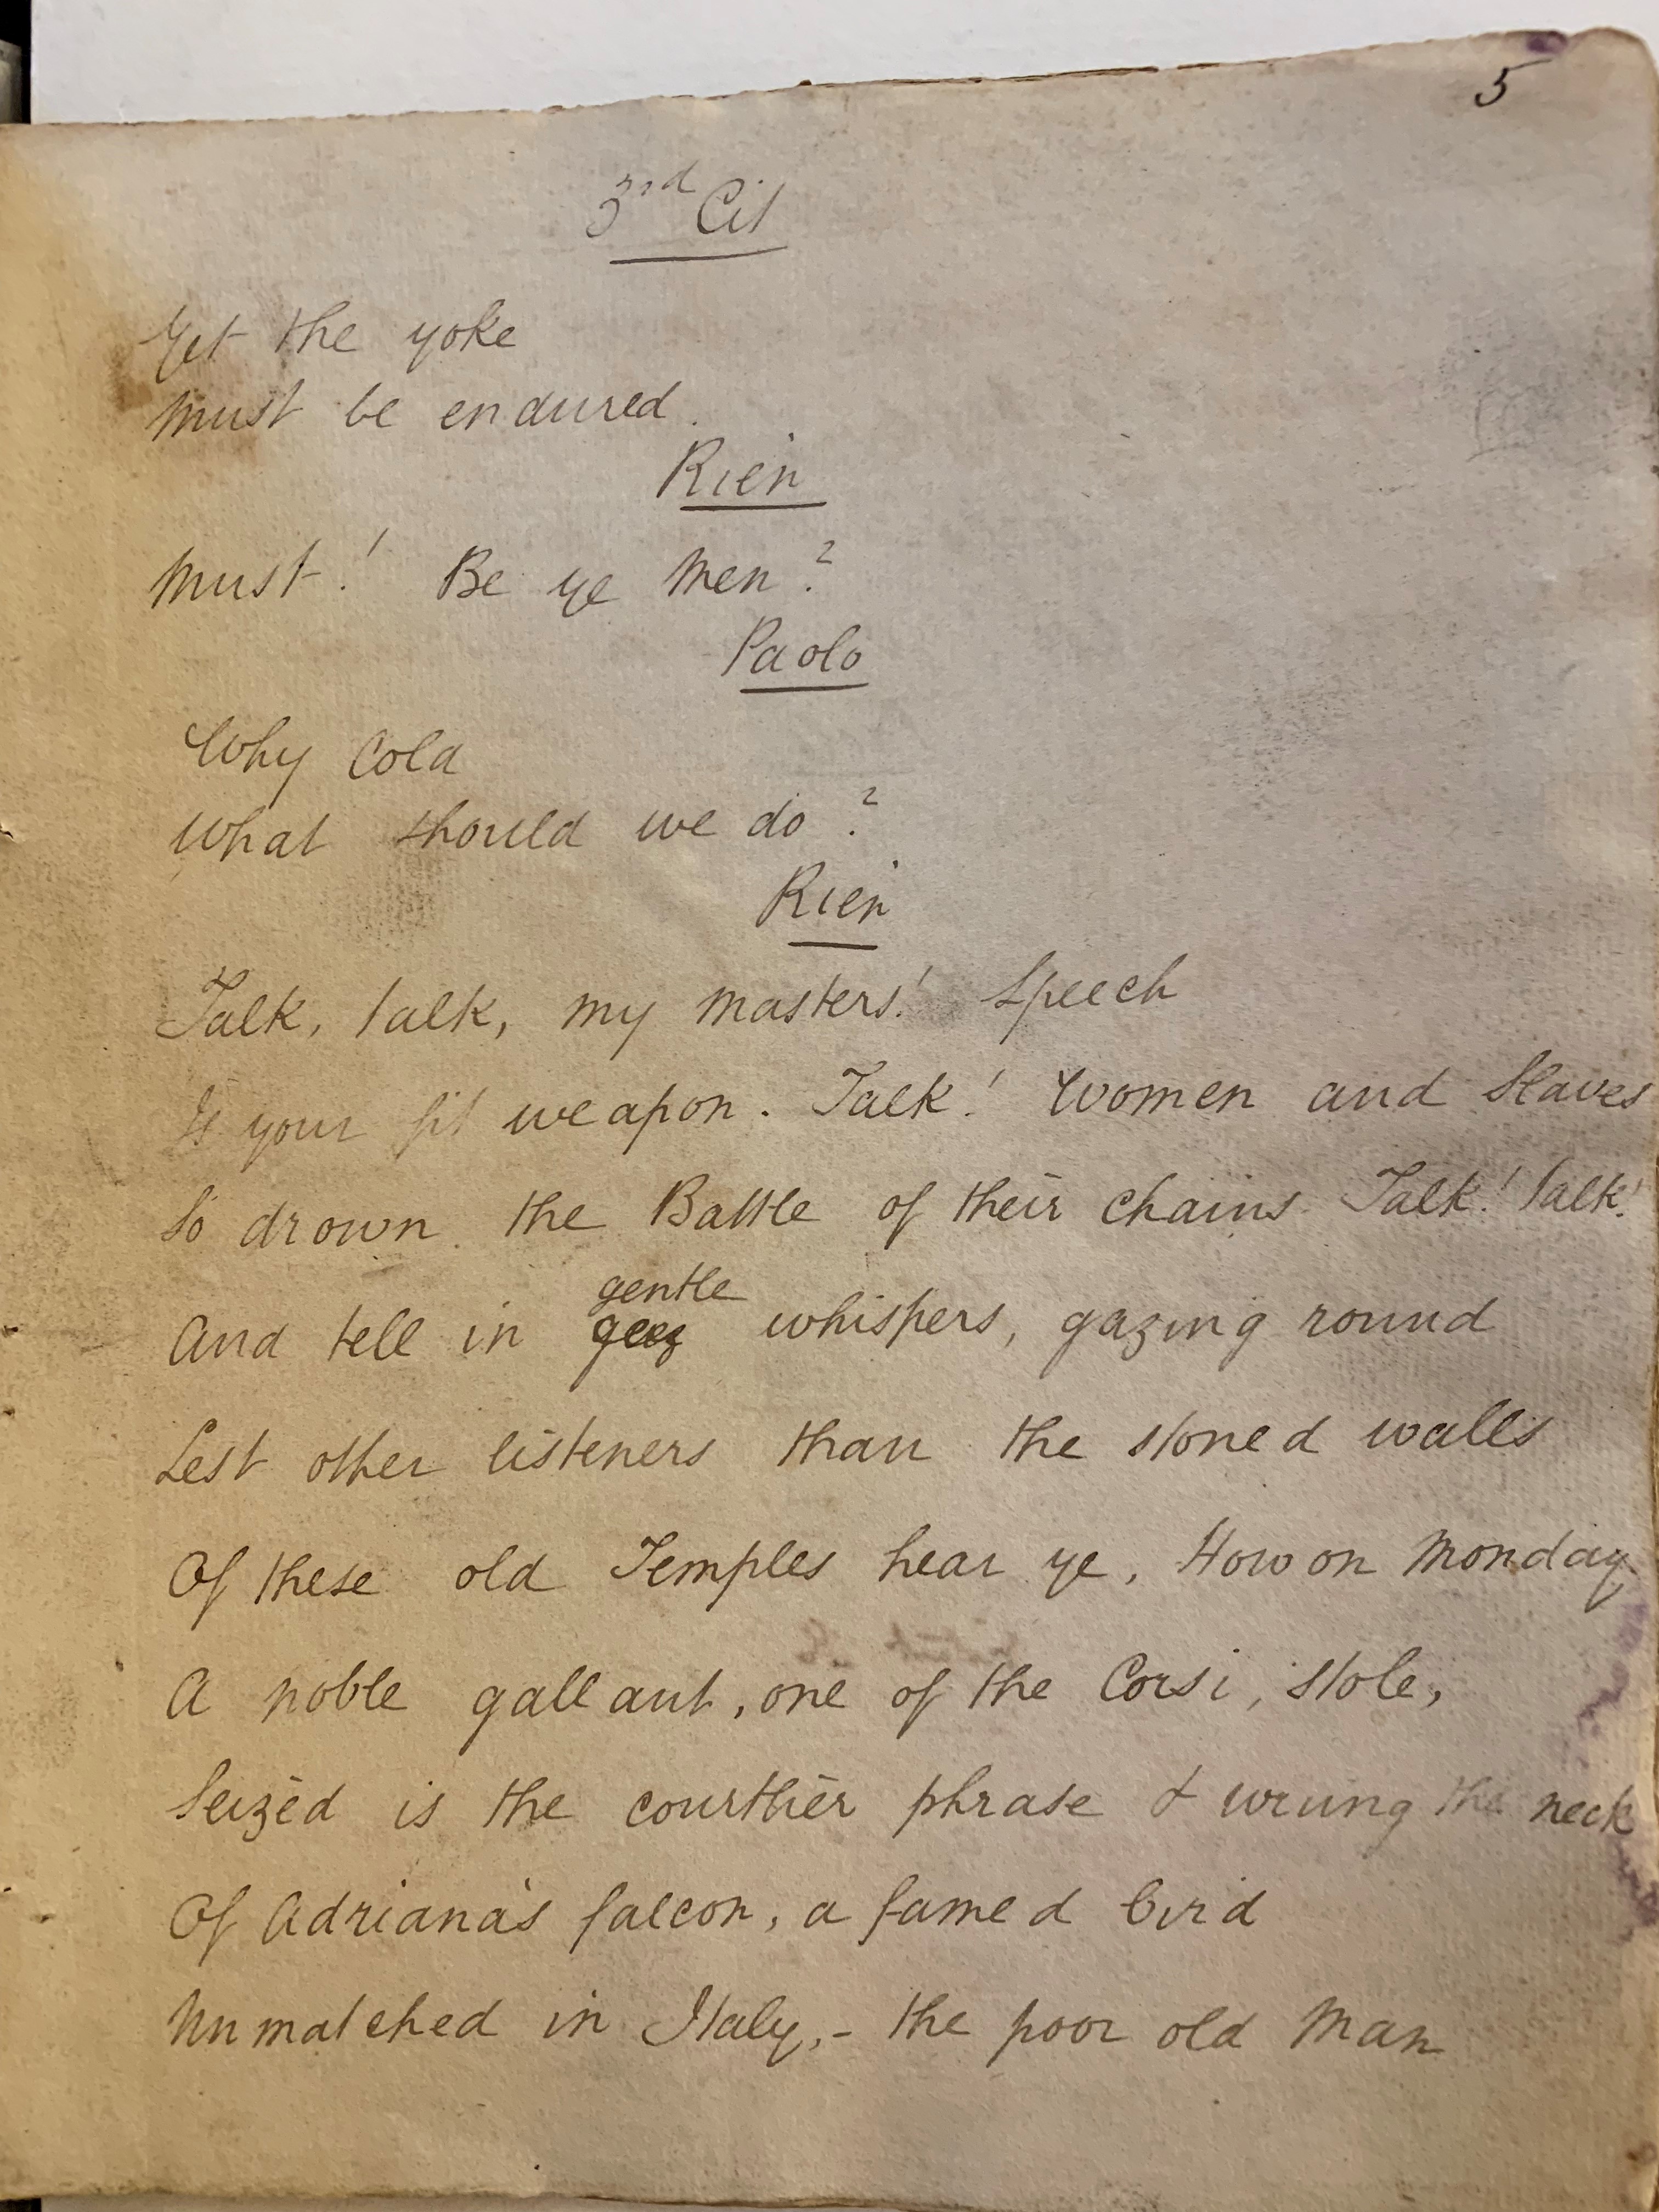 5
3rd Cit
Yet the yoke
Must be endured.
Rien
Must! Be ye Men?
Paolo
Why Cola
What should we do?
Rien
Talk, talk, my Masters! Speech
Is your fit weapon. Talk! Women and Slaves
So drown the Battle of their chains Talk! talk!
And tell in gentle whispers, gazing round
Lest other listeners than the stoned walls
Of these old Temples hear ye, How on Monday
A noble gallant, one of the Corsi, stole,
Seized is the courtlier phrase & wrung the neck
Of Adriana's falcon, a famed bird
Unmatched in Italy, - the poor old Man